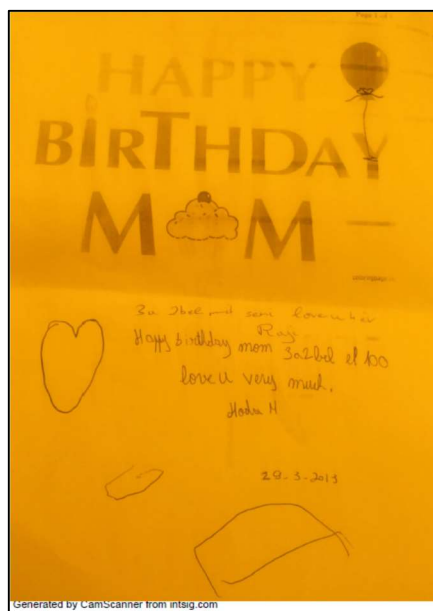 Page 1 of 1
HAPPY
BIRTHDAY
MOM
3a 2bel
Raji
Happy birthday mom 3a2bel el 100
love u very much.
28-3-2013
Generated by CamScanner from intsig.com